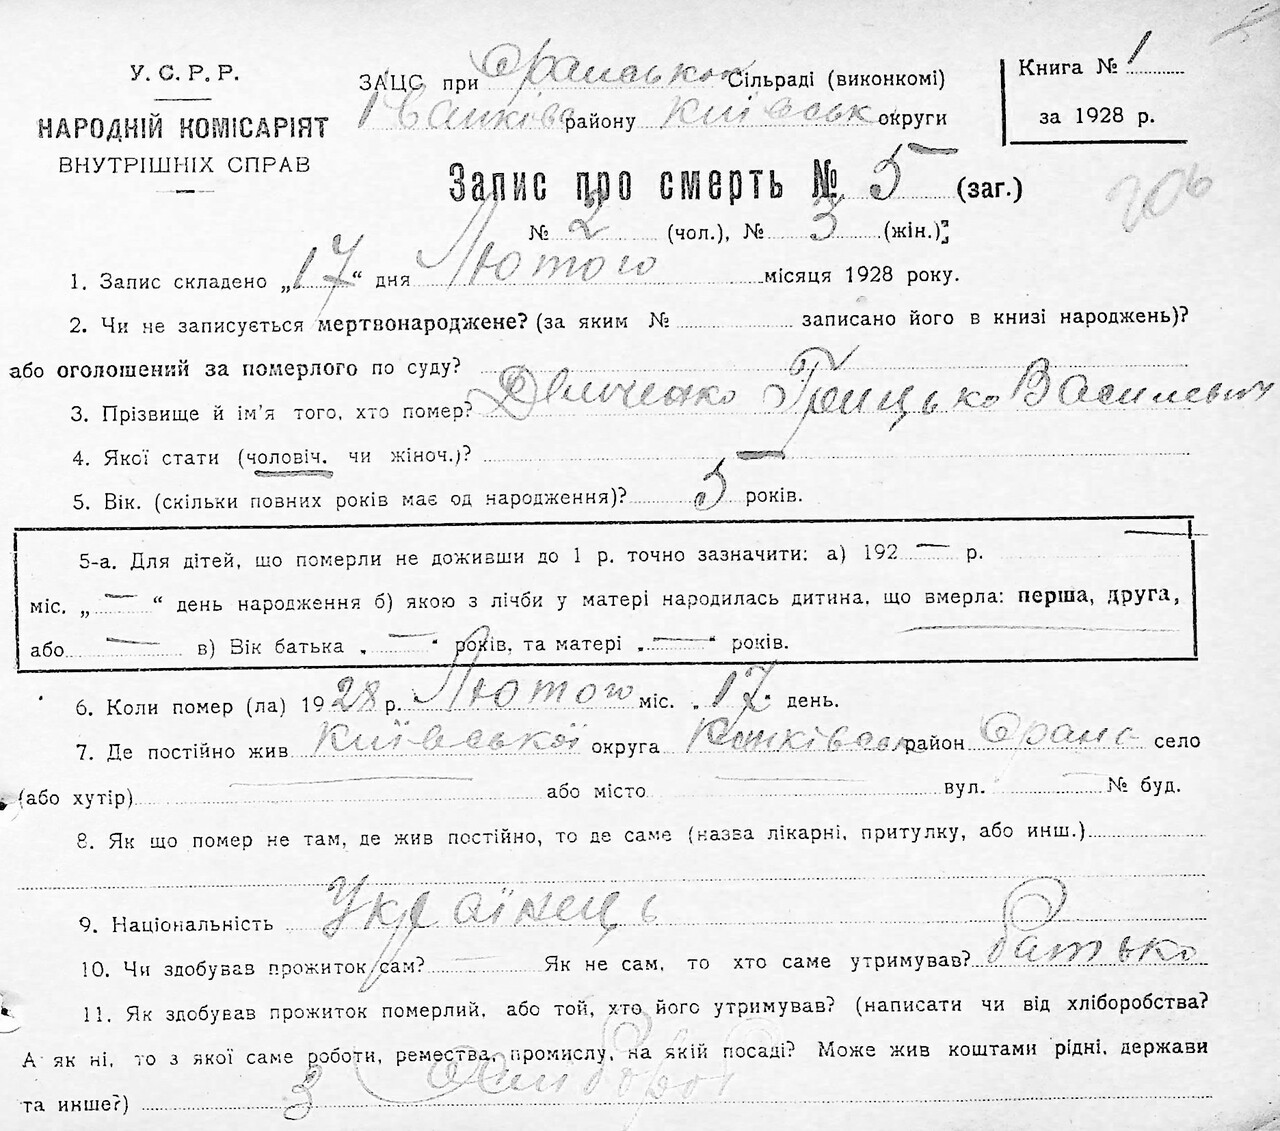 У. С. Р. Р.
НАРОДНІЙ КОМІСАРІЯТ
ВНУТРІШНІХ СПРАВ
ЗАЦС при Оранськом Сільраді (виконкомі)
Іванківськ району Київськ округи
Книга № 1
за 1928 р.
Запис про смерть № 5 (заг.)
206
№ 2 (чол.), № 3 (жін.)
1. Запис складено „17“ дня Лютого місяця 1928 року.
2. Чи не записується мертвонароджене? (за яким № записано його в книзі народжень)?
або оголошений за померлого по суду?
3. Прізвище й ім’я того, хто помер? Демченко Грицько Василевич
4. Якої стати (чоловіч. чи жіноч.)?
5. Вік. (скільки повних років має од народження)? 5 років.
5-а. Для дітей, що померли не доживши до 1 р. точно зазначити: а) 192 — р.
міс. „ — “ день народження б) якою з лічби у матері народилась дитина, що вмерла: перша, друга,
або — в) Вік батька „ — “ років, та матері „ — “ років.
6. Коли помер (ла) 1928 р. Лютого міс. „17“ день.
7. Де постійно жив Київської округа район Оране село
(або хутір) — або місто — вул. — № буд.
8. Як що помер не там, де жив постійно, то де саме (назва лікарні, притулку, або инш.)
9. Національність Українець
10. Чи здобував прожиток сам? — Як не сам, то хто саме утримував? батько
11. Як здобував прожиток померлий, або той, хто його утримував? (написати чи від хліборобства?
А як ні, то з якої саме роботи, ремества, промислу, на якій посаді? Може жив коштами рідні, держави
та инше?) З